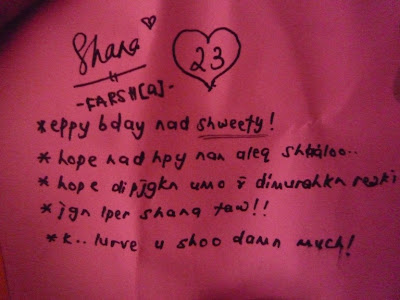 Shana
23
-FARSH[a]-
*eppy bday nad shweety!
*hope nad hpy nan aleq shhaloo..
*hope dipjgkn umo & dimurahkn rezki
*jgn lper shana taw!!
*k.. lurve u shoo damn much!